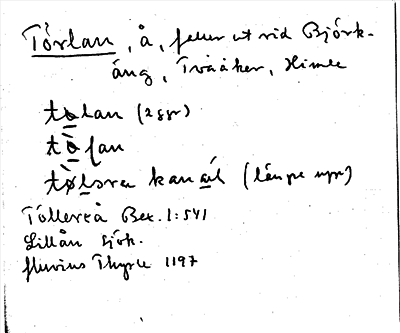 Törlan, å, faller ut vid Björk-
äng, Tvååker, Himle
tø̀lan (2 ggr)
tø̀lan
tø̀lsra kanál (längre upp)
Töllereå Bex. 1:541
Lillån sjök.
fluvius Thyrle 1197